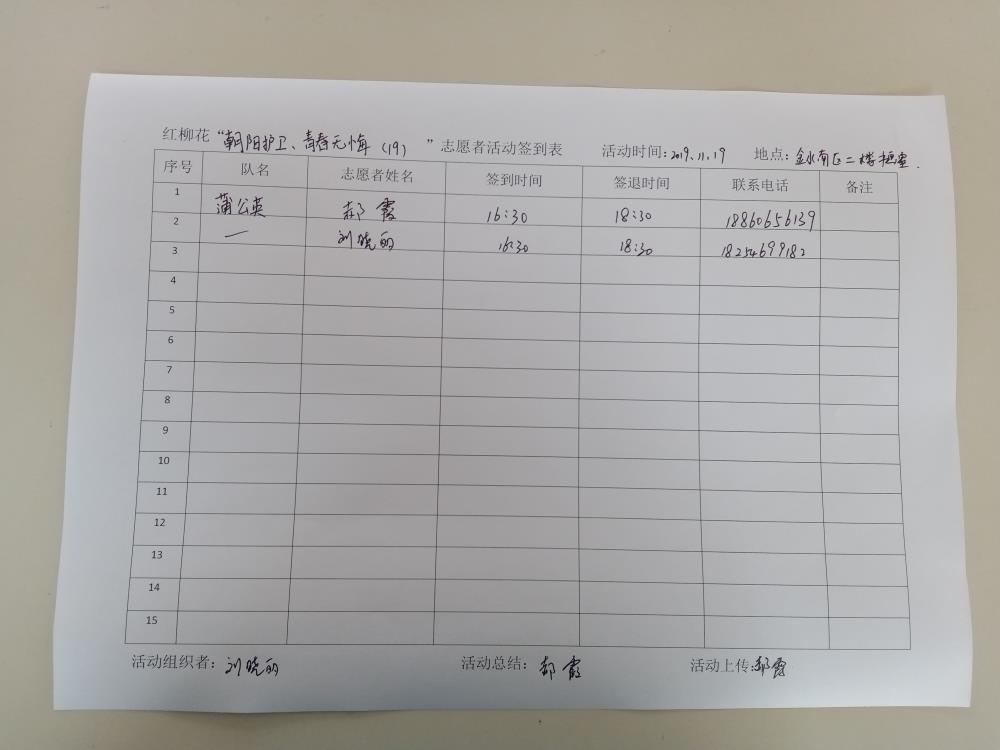 红柳花“朝阳护卫、青春无悔（19） ”志愿者活动签到表 活动时间：2019.11.19 地点：金水南区二楼
序号 队名 志愿者姓名 签到时间 签退时间 联系电话 备注
1 蒲公英 郝霞 16:30 18:30 18860656139
2 一 刘晓丽 16:30 18:30 18254699182
3
4
5
6
7
8
9
10
11
12
13
14
15
活动组织者：刘晓丽 活动总结：郝霞 活动上传：郝霞